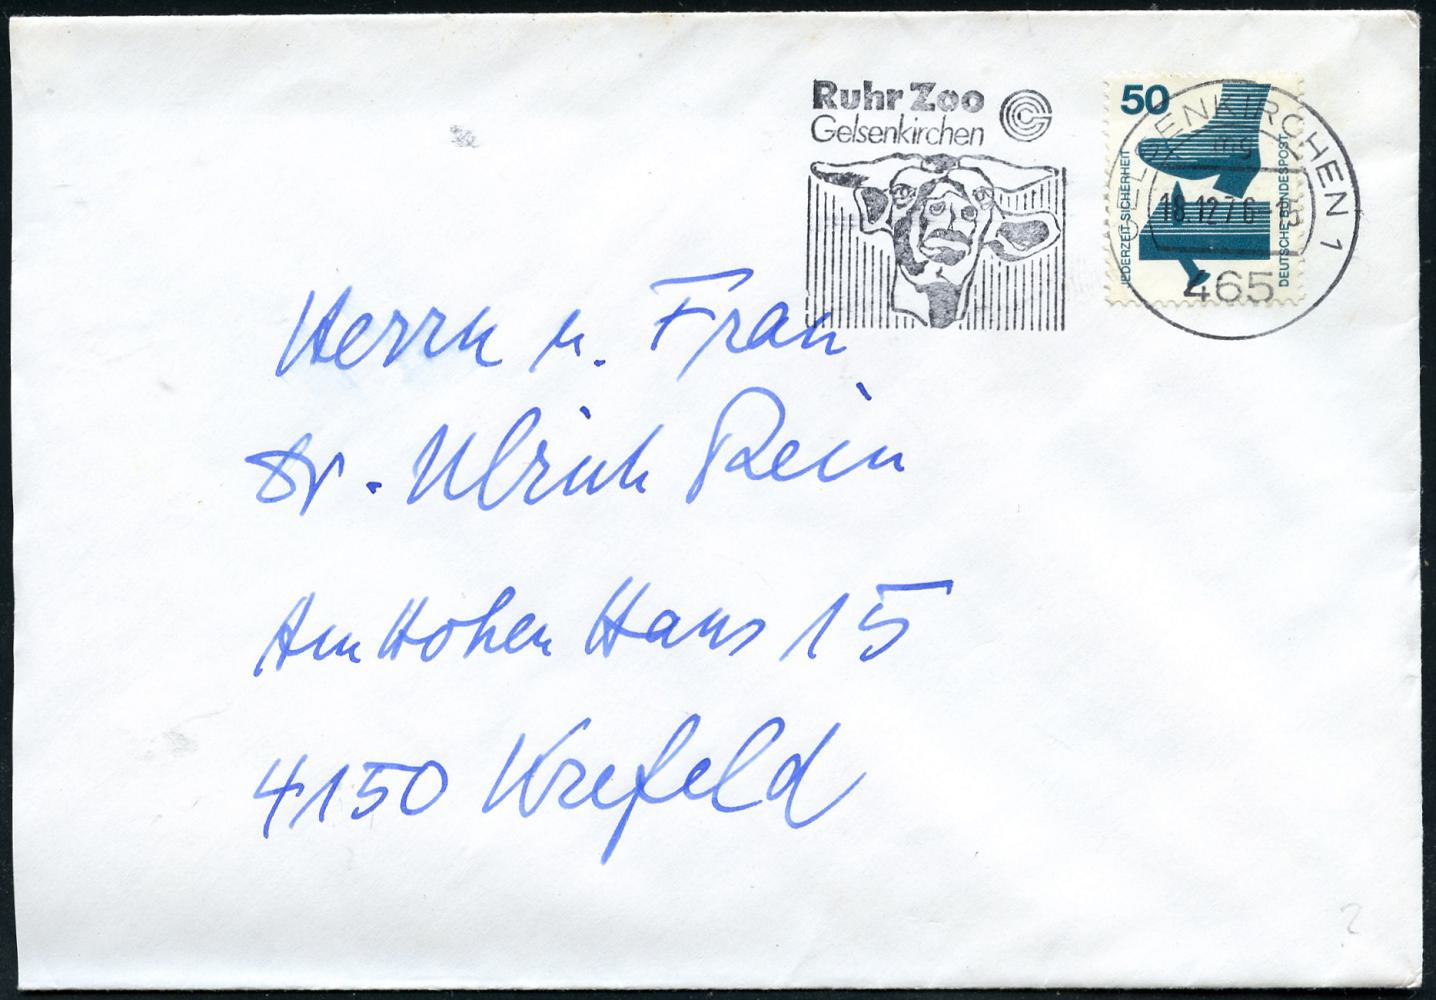 Ruhr Zoo
Gelsenkirchen
50
JEDERZEIT SICHERHEIT
DEUTSCHE BUNDESPOST
GELSENKIRCHEN 1
mg
18.12.76
465
Herrn u. Frau
Dr. Ulrich Rein
Am Hohen Haus 15
4150 Krefeld
2